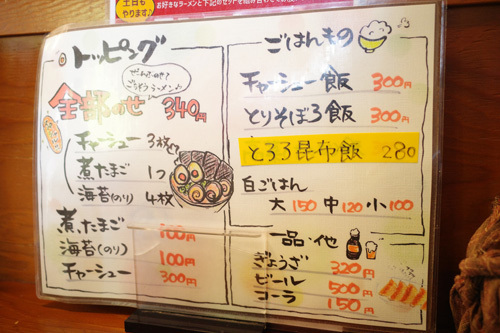 土日も
やります♪
お好きなラーメンと下記のセットを組み合わせて
トッピング
全部のせ 340円
チャーシュー 3枚
煮たまご 1つ
海苔(のり) 4枚
煮たまご 100円
海苔(のり) 100円
チャーシュー 300円
ごはんもの
チャーシュー飯 300円
とりそぼろ飯 300円
とろろ昆布飯 280
白ごはん
大150 中120 小100
一品・他
ぎょうざ 320円
ビール 500円
コーラ 150円